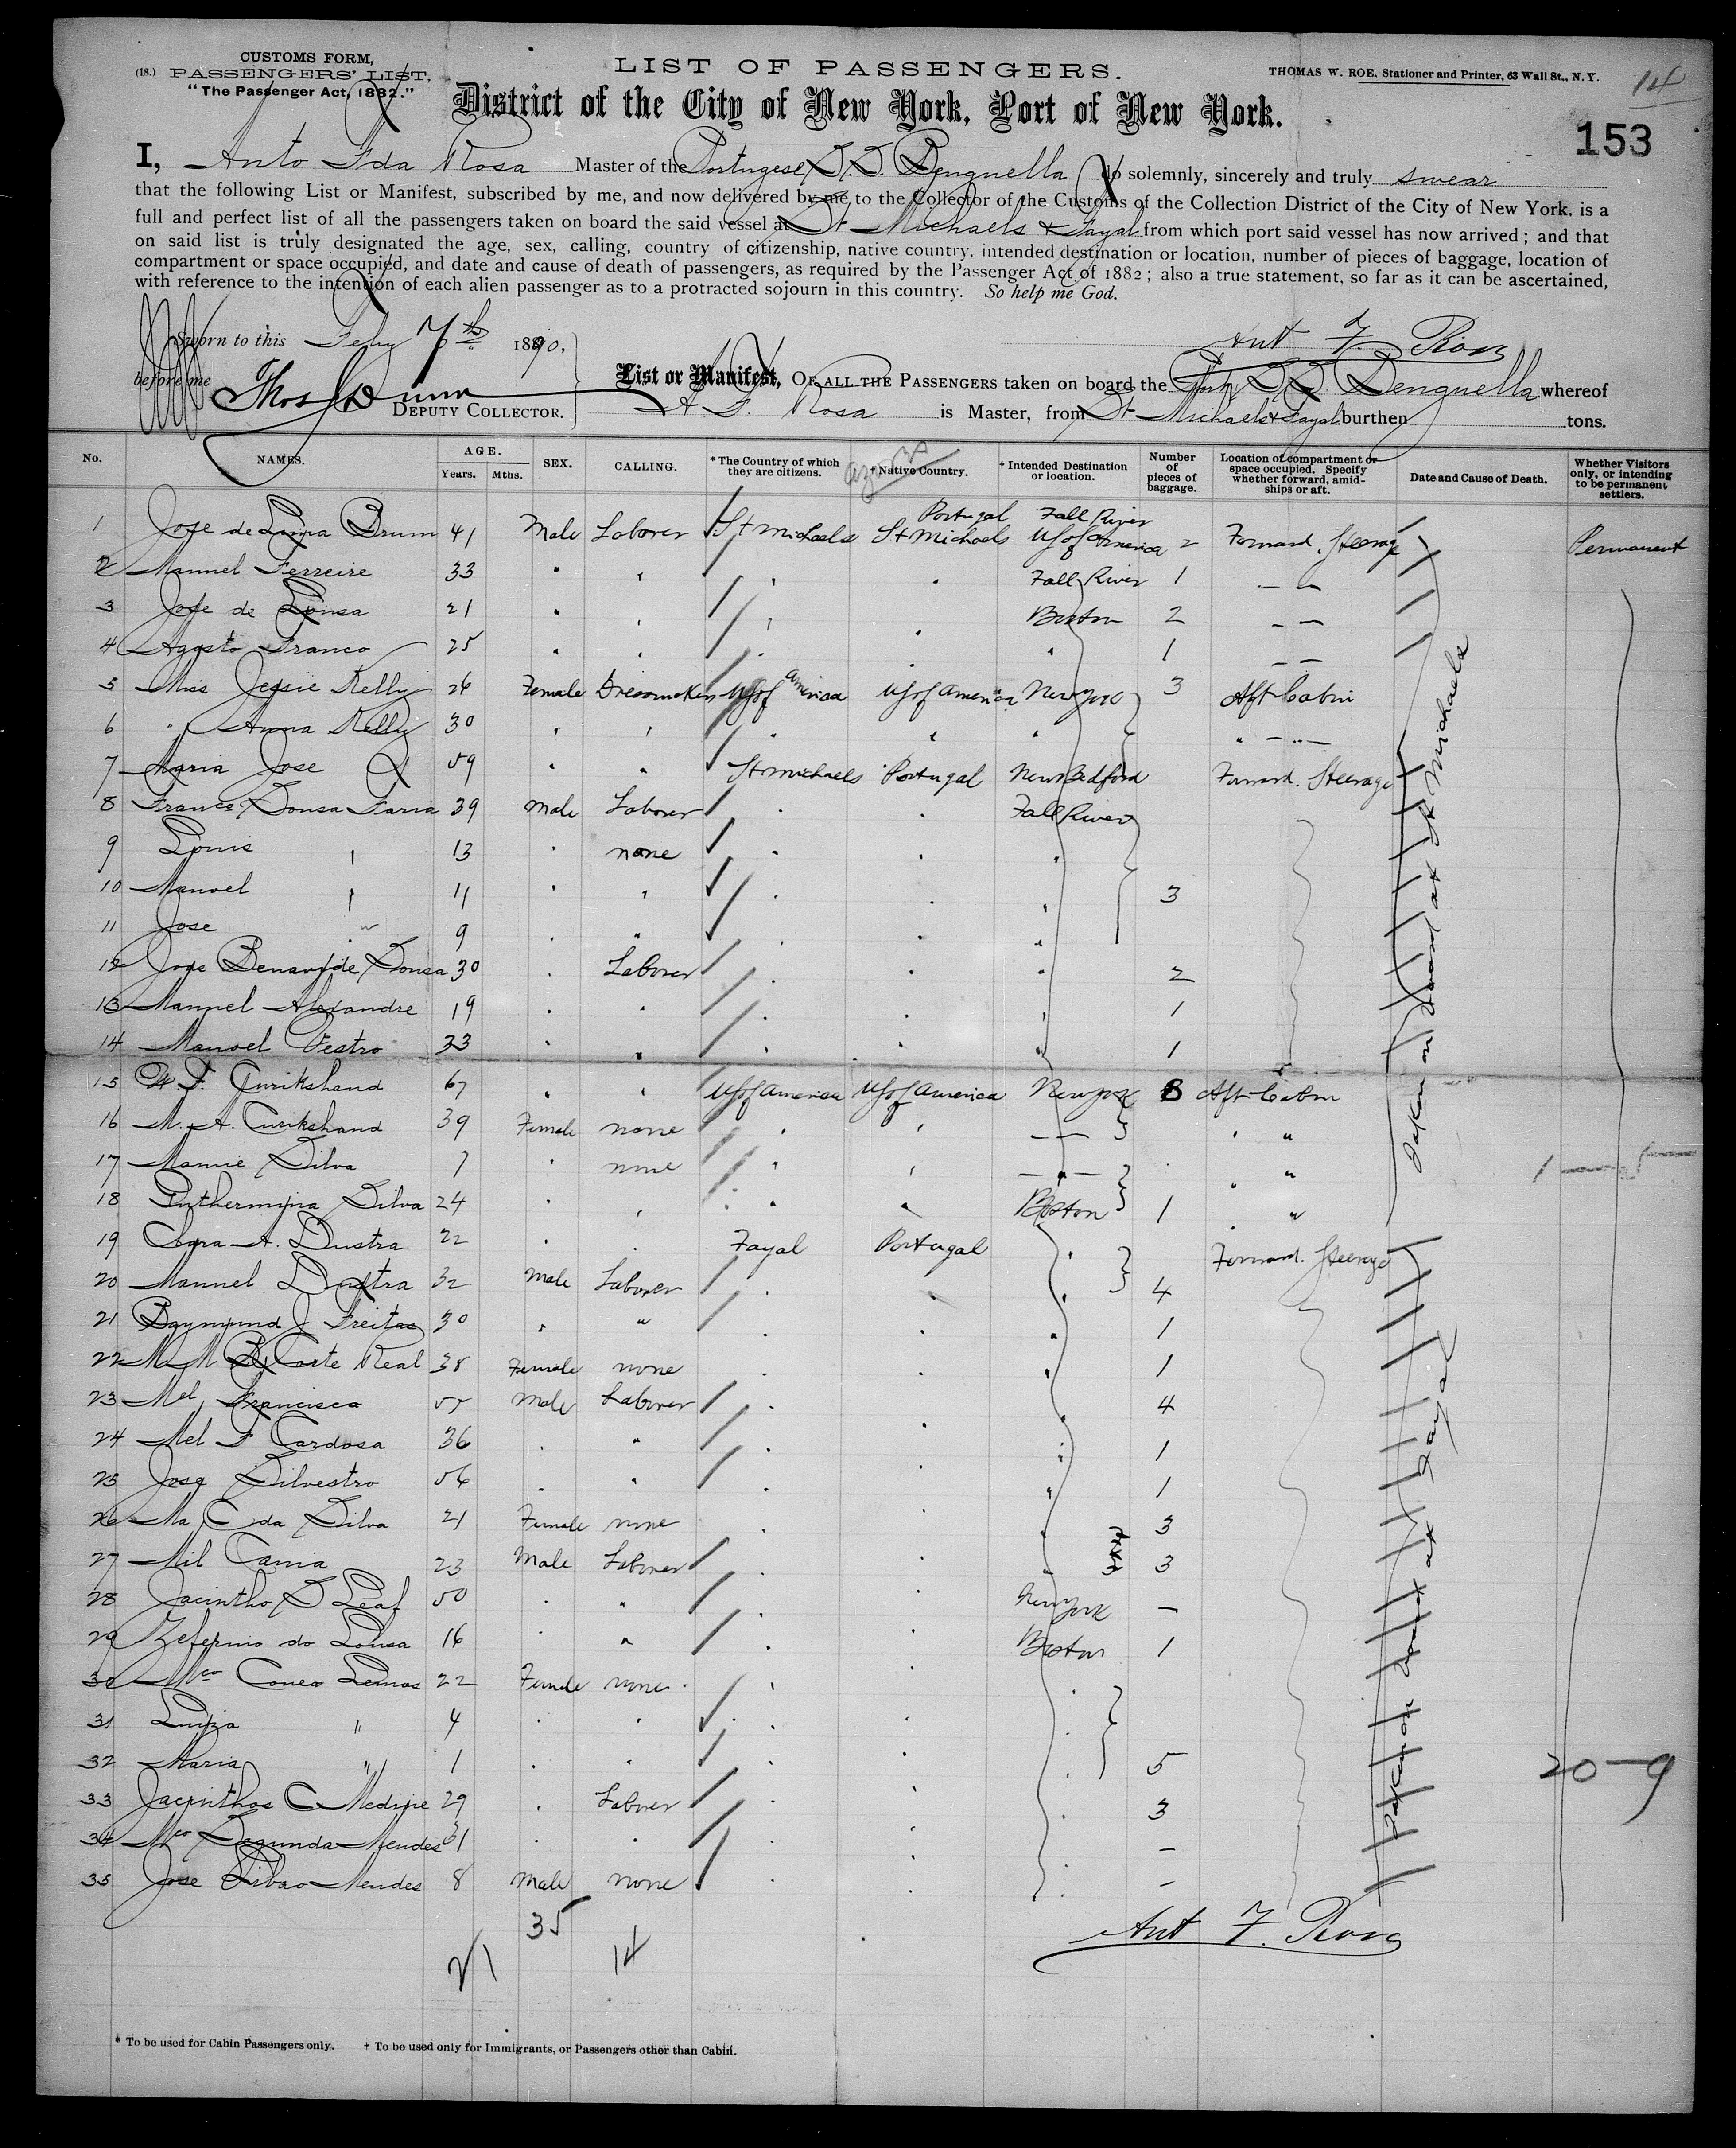 CUSTOMS FORM,
(18.) PASSENGERS' LIST.
"The Passenger Act, 1882."
LIST OF PASSENGERS.
THOMAS W. ROE. Stationer and Printer, 63 Wall St., N. Y.
14
District of the City of New York, Port of New York.
153
I, Anto Fda Rosa Master of the Portugese S.S. Benguella do solemnly, sincerely and truly swear
that the following List or Manifest, subscribed by me, and now delivered by me, to the Collector of the Customs of the Collection District of the City of New York, is a
full and perfect list of all the passengers taken on board the said vessel at St Michaels & Fayal from which port said vessel has now arrived; and that
on said list is truly designated the age, sex, calling, country of citizenship, native country, intended destination or location, number of pieces of baggage, location of
compartment or space occupied, and date and cause of death of passengers, as required by the Passenger Act of 1882; also a true statement, so far as it can be ascertained,
with reference to the intention of each alien passenger as to a protracted sojourn in this country. So help me God.
Sworn to this Feby 7th 1890,
Ant F. Rosa
before me Thos Dunn
DEPUTY COLLECTOR.
List or Manifest, OF ALL THE PASSENGERS taken on board the Port. S.S. Benguella whereof
A F. Rosa is Master, from St Michaels & Fayal burthen tons.
No. NAMES. AGE. Years. Mths. SEX. CALLING. * The Country of which they are citizens. † Native Country. † Intended Destination or location. Number of pieces of baggage. Location of compartment or space occupied. Specify whether forward, amidships or aft. Date and Cause of Death. Whether Visitors only, or intending to be permanent settlers.
Azores
Portugal Fall River
1 Jose de Lima Brum 41 Male Laborer St Michaels St Michaels US of America 2 Forward. Steerage Permanent
2 Manuel Ferreire 33 " " " " Fall River 1 — —
3 Jose de Sousa 21 " " " Boston 2 — —
4 Agosto Franco 25 " " " " " 1 — —
5 Miss Jessie Kelly 26 Female Dressmaker US of America US of America New York 3 Aft Cabin
6 " Anna Kelly 30 " " " " " " — " —
7 Maria Jose 59 " " St Michaels Portugal New Bedford Forward. Steerage
8 Franco Sousa Faria 39 Male Laborer " " Fall River
9 Louis " 13 " none " " "
10 Manoel " 11 " " " " " 3
11 Jose " 9 " " " " "
12 Jose Benavide Sousa 30 " Laborer " " " 2
13 Manuel Alexandre 19 " " " " " 1
14 Manoel Pestro 33 " " " " " 1
15 W F. Cruikshand 67 " " US of America US of America New York 3 Aft Cabin
16 M. A. Cruikshand 39 Female none " " — — " "
17 Mamie Silva 7 " none " " — " — " "
18 Silva 24 " " " " Boston 1 " "
19 Clara A. Dustra 22 " " Fayal Portugal " Forward. Steerage
20 Manuel Dustra 32 Male Laborer " " " 4
21 Raymund J Freitas 30 " " " " " 1
22 M M Corte Real 38 Female none " " " 1
23 Mel Francisco 55 Male Laborer " " " 4
24 Mel F Cardosa 36 " " " " " 1
25 Jose Silvestro 56 " " " " " 1
26 Ma C da Silva 21 Female none " " " 3
27 Mil Cania 23 Male Laborer " " " 3
28 Jacintho S Leal 50 " " " " New York —
29 Zeferino do Sousa 16 " " " " Boston 1
30 Mca Lemos 22 Female none " " "
31 Luiza " 4 " " " " "
32 Maria " 1 " " " " " 5
33 Jacinthos C Medine 29 " Laborer " " " 3
34 Mca Segunda Mendes 31 " " " " " —
35 Jose Mendes 8 Male none " " " —
Taken on board at St Michaels
Taken on board at Fayal
1 — 5
20 — 9
35
21 14
Ant F. Rosa
* To be used for Cabin Passengers only. † To be used only for Immigrants, or Passengers other than Cabin.